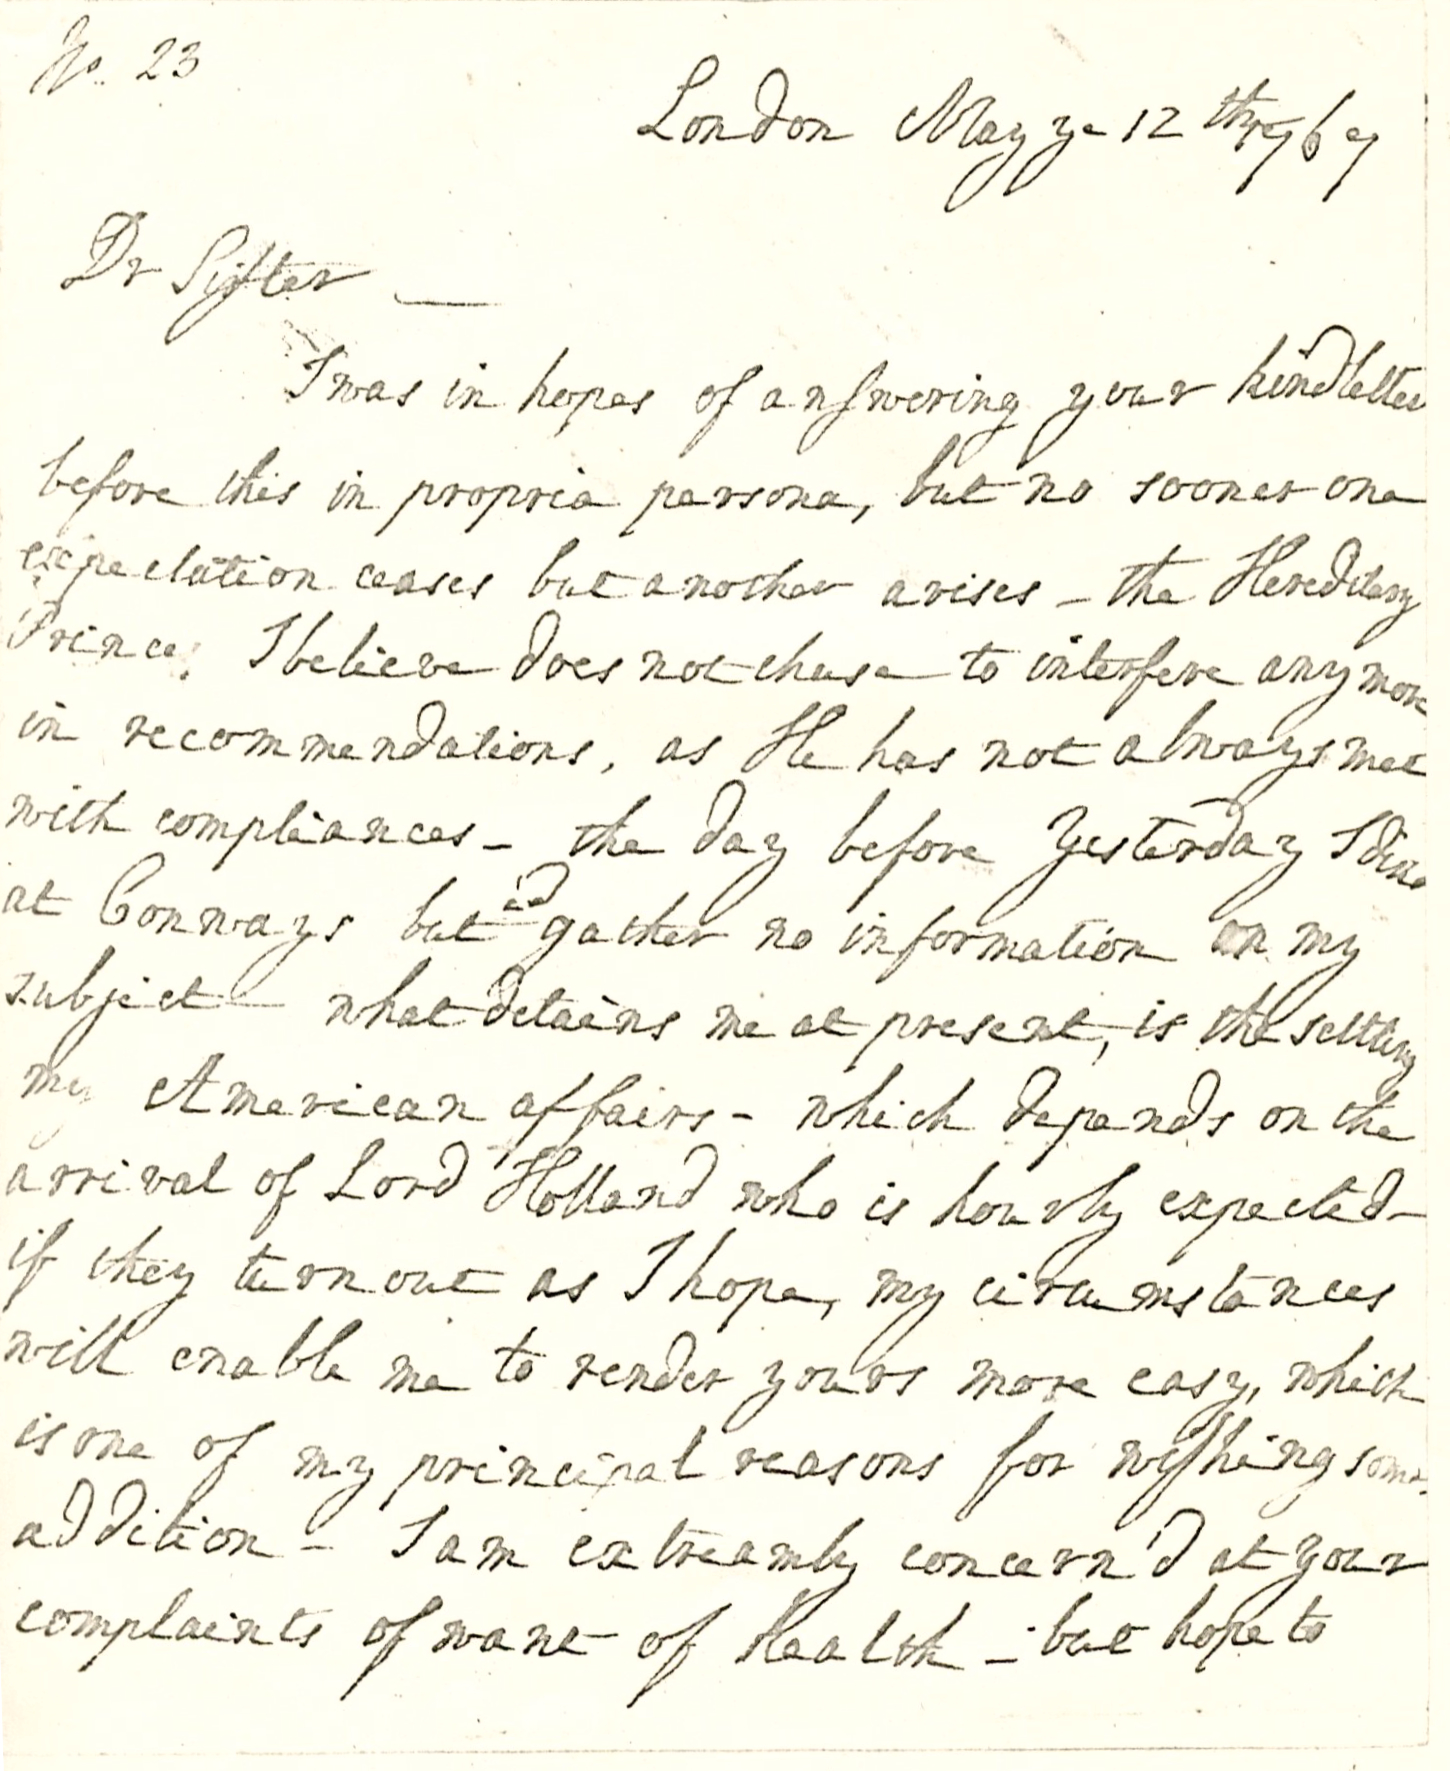 No. 23
London May ye 12th 1767
Dr Sister —
I was in hopes of answering your kind letter
before this in propria persona, but no sooner one
expectation ceases but another arises – the Hereditary
Prince, I believe does not chuse to interfere any more
in recommendations, as He has not always met
with compliances – the day before Yesterday I din'd
at Conways but cd gather no information on my
subject – what detains me at present, is the settling
my American affairs – which depends on the
arrival of Lord Holland who is hourly expected –
if they turn out as I hope, my circumstances
will enable me to render yours more easy, which
is one of my principal reasons for wishing some
addition – I am extreamly concern'd at your
complaints of want of Health – but hope to